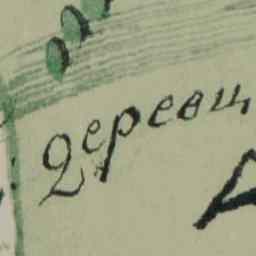 деревщ